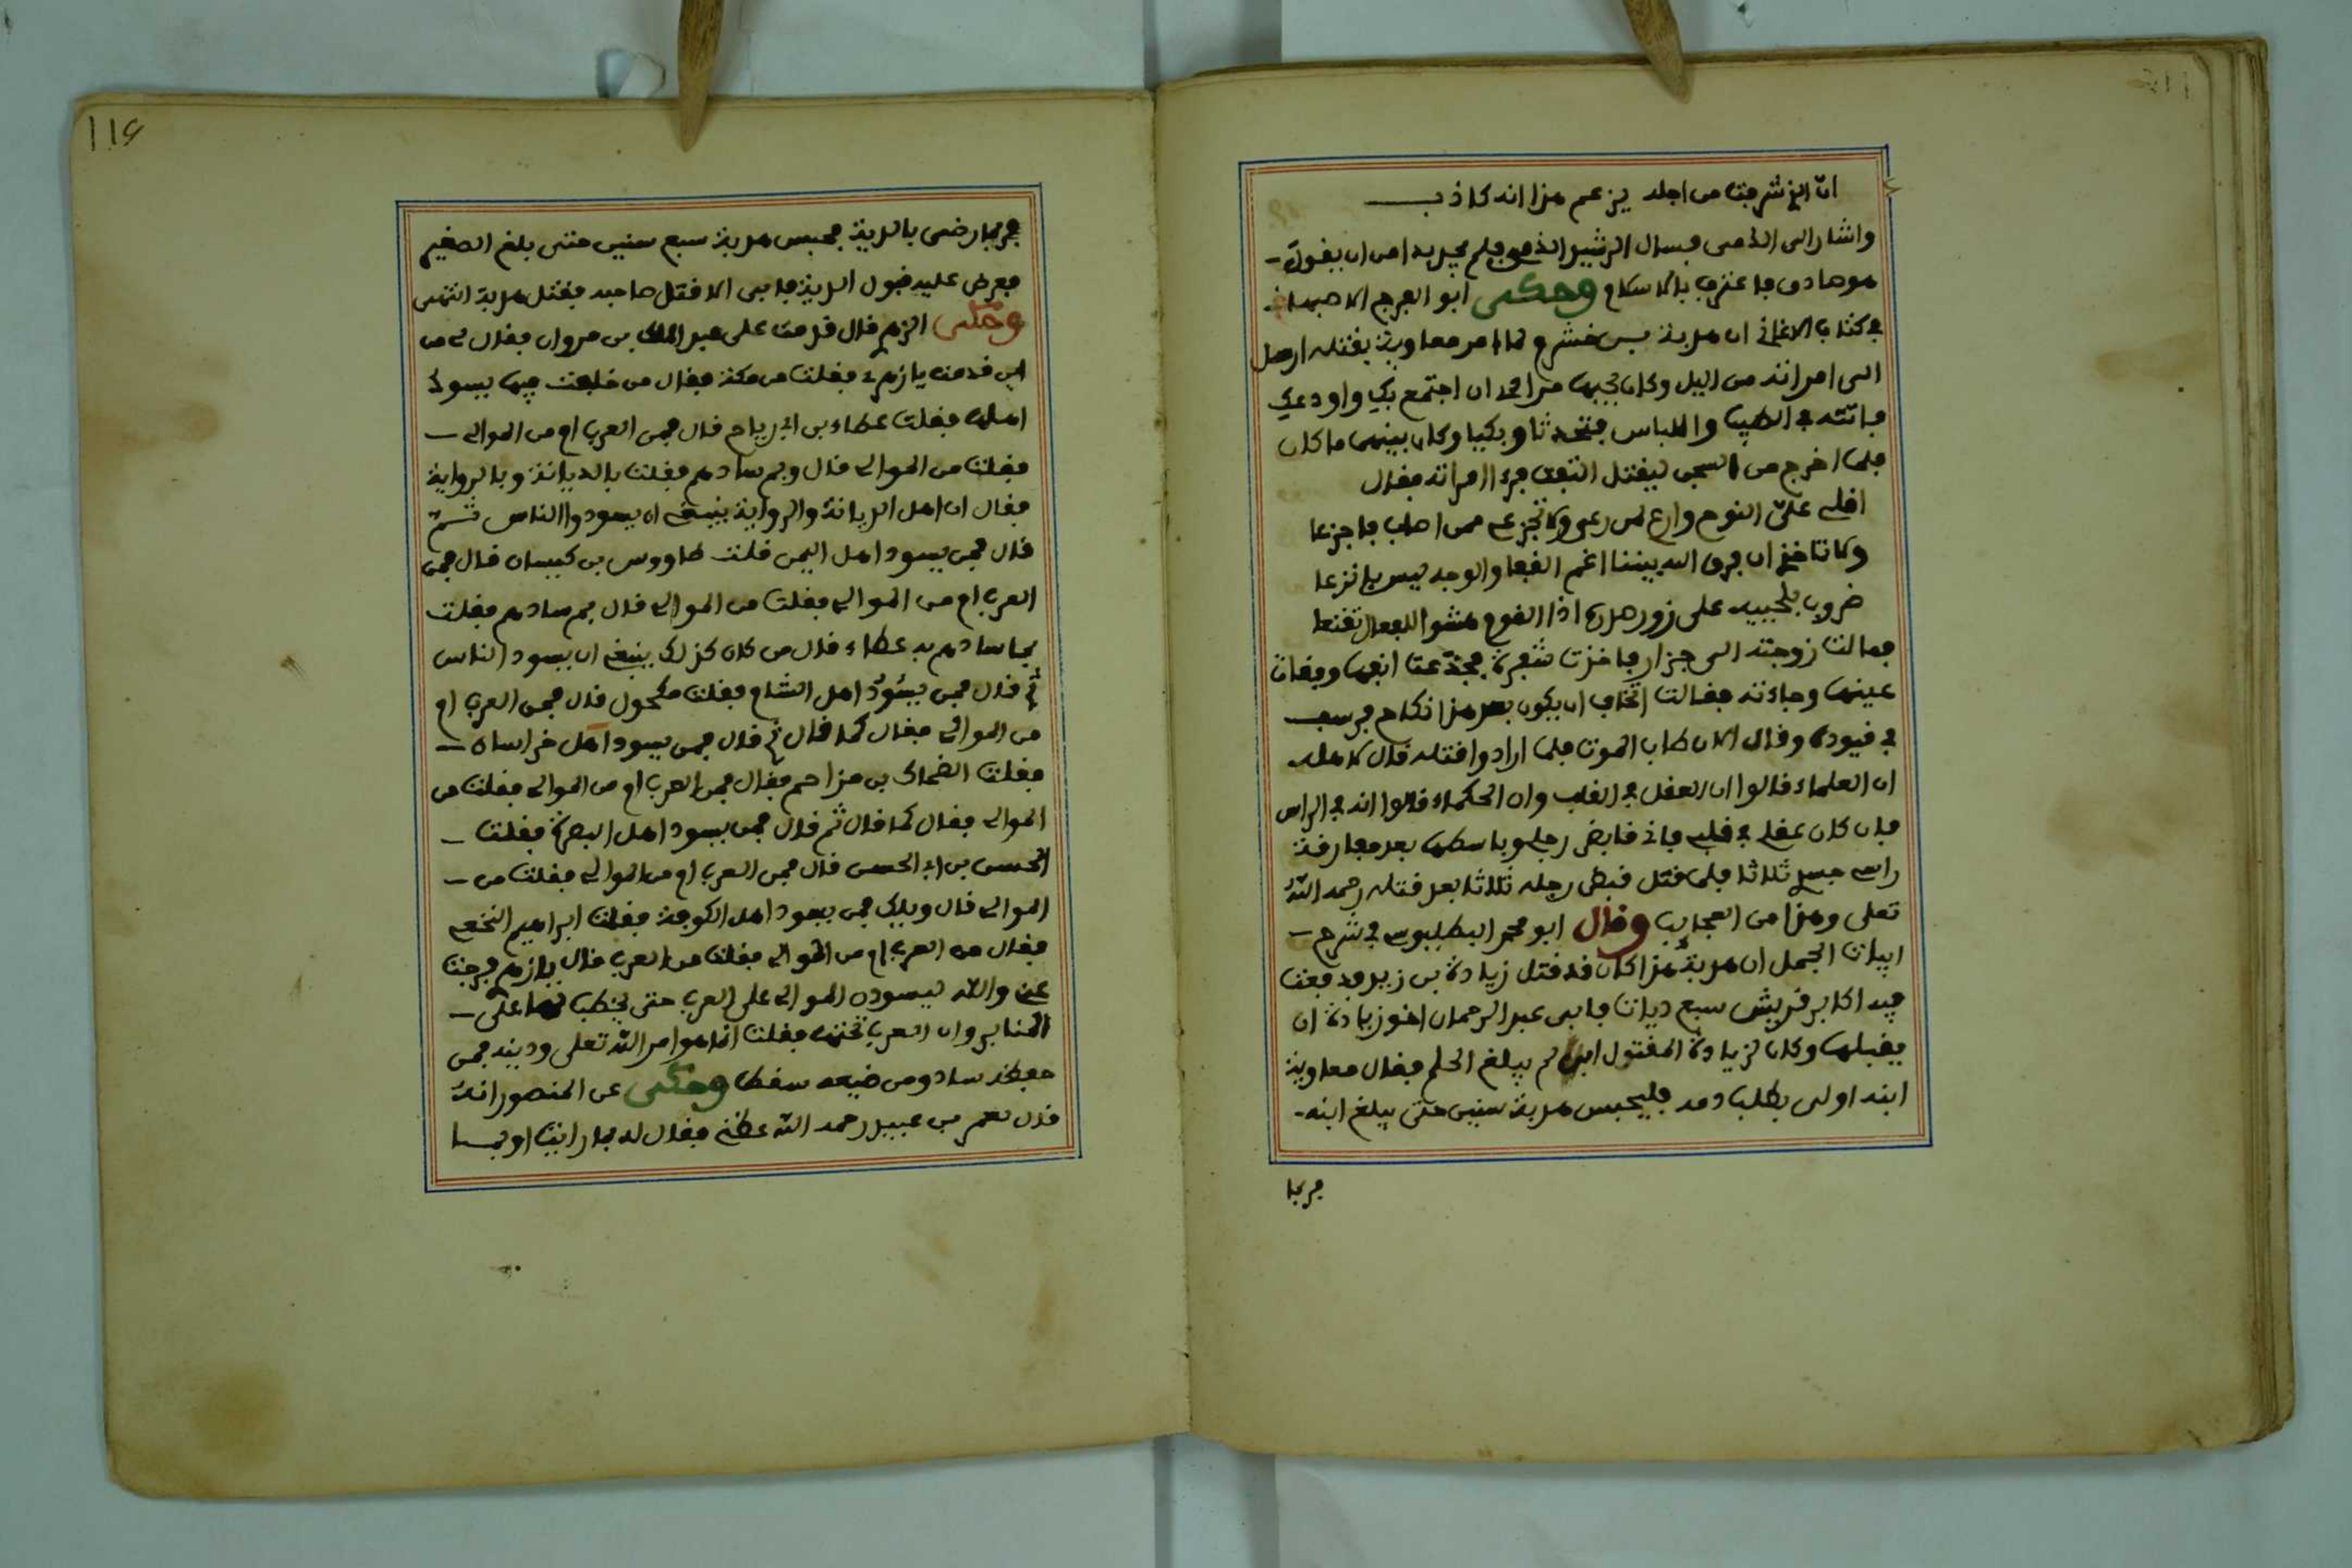 ان الذي شرفت من اجله يزعم هذا انه كاذب
واشار الى الذمى فسال الرشيد الذمى فلم يجد بدا من ان يقول
هو صادق فاعترف بالاسلام وحكى ابو الفرج الاصبهانى
في كتاب الاغاني ان هدبة بن خشرم لما امر معاوية بقتله ارسل
الى امراته من اليل وكان يحبها مرا الحد ان اجتمع بك واودعك
فاتته في الطيب واللباس فتحدثا وبكيا وكان بينهما ما كان
فلما اخرج من السجن ليقتل التفت فرءا امراته فقال
اقلي علي النوم وارع لمن رعى ولا تجزعي ممن اصاب فاجزعا
ولا تاخذ ان فرق الله بيننا اغم القفا والوجه ليس بانزعا
ضروب بلحييه على زور صدره اذا القوم هشوا للفعال تقنعا
فمالت زوجته الى جزار فاخذت شفرة فجذعت انفها وفقات
عينها وجاءته فقالت اتخاف ان يكون بعد هذا نكاح فرسف
في قيوده وقال الان طاب الموت فلما ارادوا قتله قال لاهله
ان العلماء قالوا ان العقل في القلب وان الحكماء قالوا انه في الراس
فان كان عقلي في قلبي فاني قابض رجلي وباسطها بعد مفارقة
راسي جسدي ثلاثا فلما قتل قبض رجله ثلاثا بعد قتله رحمه الله
تعلى وهذا من العجايب وقال ابو محمد البطليوسي في شرح
ابيات الجمل ان هدبة هذا كان قد قتل زيادة بن زيد فدفعت
فيه اكابر قريش سبع ديات فابى عبد الرحمان اخو زيادة ان
يقبلها وكان لزيادة المقتول ابن لم يبلغ الحلم فقال معاوية
ابنه اولى بطلب دمه فليحبس هدبة سنين حتى يبلغ ابنه
فربما
116
فربما رضى بالدية فحبس هدبة سبع سنين حتى بلغ الصغير
فعرض عليه قبول الدية فابى الا قتل صاحبه فقتل هدبة انتهى
وحكى الزهري قال قدمت على عبد الملك بن مروان فقال لي من
اين قدمت يا زهري فقلت من مكة فقال من خلفت فيها يسود
اهلها فقلت عطاء بن ابي رباح قال فمن العرب ام من الموالي
فقلت من الموالي قال وبم سادهم فقلت بالديانة وبالرواية
فقال ان اهل الديانة والرواية ينبغي ان يسودوا الناس ثم
قال فمن يسود اهل اليمن قلت طاووس بن كيسان قال فمن
العرب ام من الموالي فقلت من الموالي قال بم سادهم فقلت
بما سادهم به عطاء قال من كان كذلك ينبغي ان يسود الناس
ثم قال فمن يسود اهل الشام فقلت مكحول قال فمن العرب ام
من الموالي فقال كما قال ثم قال فمن يسود اهل خراسان
فقلت الضحاك بن مزاحم فقال فمن العرب ام من الموالي فقلت من
الموالي فقال كما قال ثم قال فمن يسود اهل البصرة فقلت
الحسن بن ابي الحسن قال فمن العرب ام من الموالي فقلت من
الموالي قال ويلك فمن يسود اهل الكوفة فقلت ابراهيم النخعي
فقال من العرب ام من الموالي فقلت من العرب قال يا زهري فرجت
عني والله ليسودن الموالي على العرب حتى يخطب لها على
المنابر وان العرب تحتها فقلت انما هو امر الله تعلى ودينه فمن
حفظه ساد ومن ضيعه سقط وحكى عن المنصور انه
قال لعمر بن عبيد رحمه الله عظني فقال له بما رايت او بما